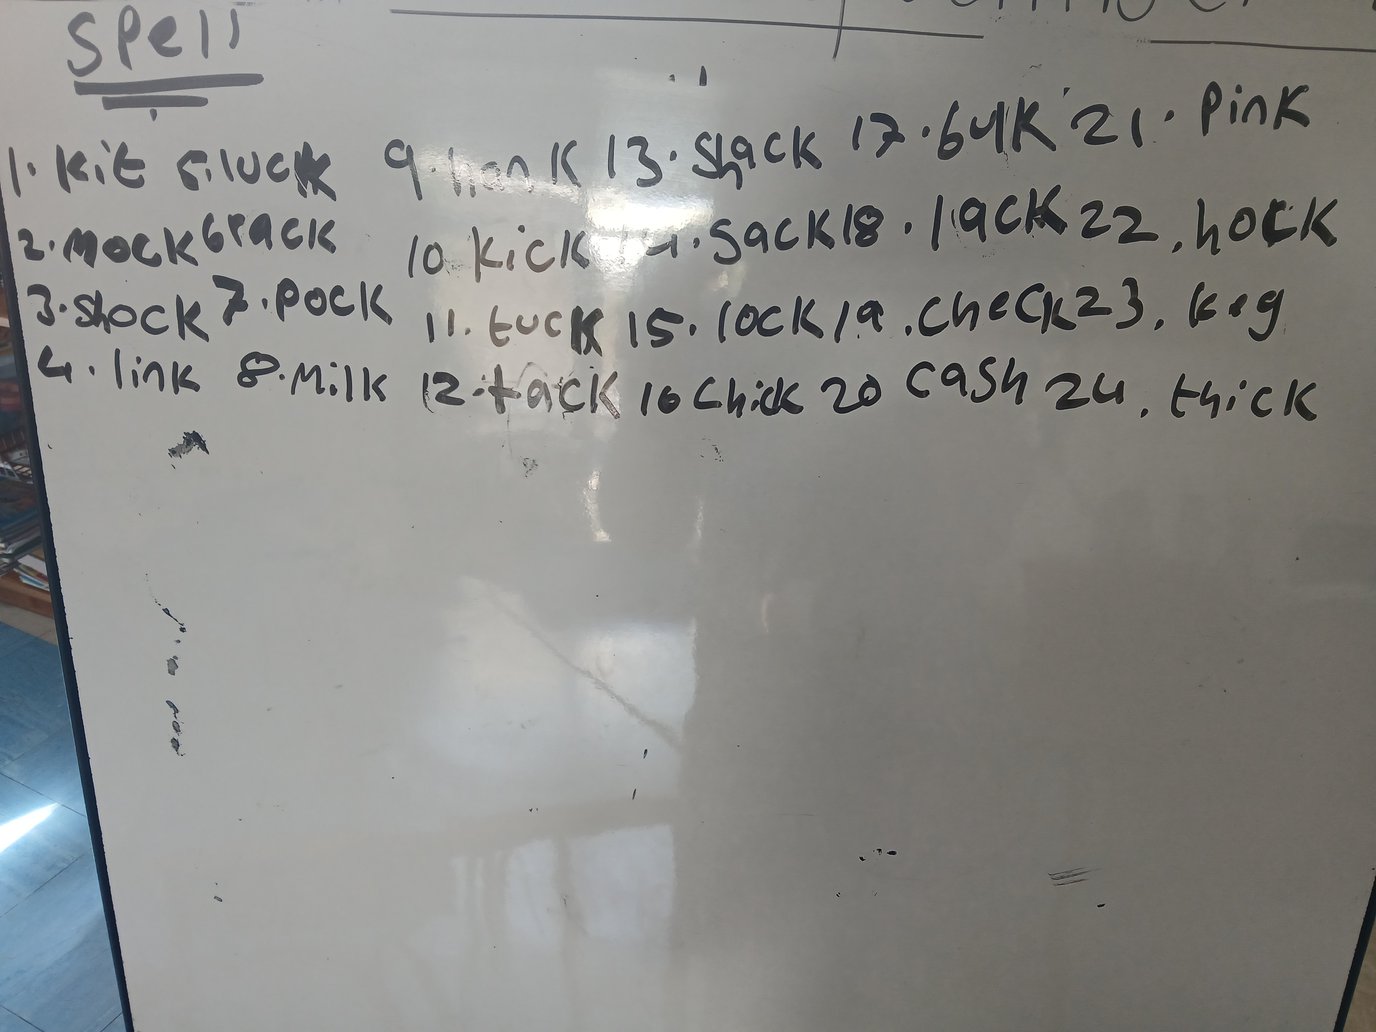 Spell
1. kit 5. luck 9. honk 13. shack 17. bulk 21. Pink
2. mock 6 rack 10. kick 14. sack 18. lack 22. hock
3. shock 7. pock 11. tuck 15. lock 19. check 23. keg
4. link 8. milk 12. tack 16 chick 20 cash 24. thick